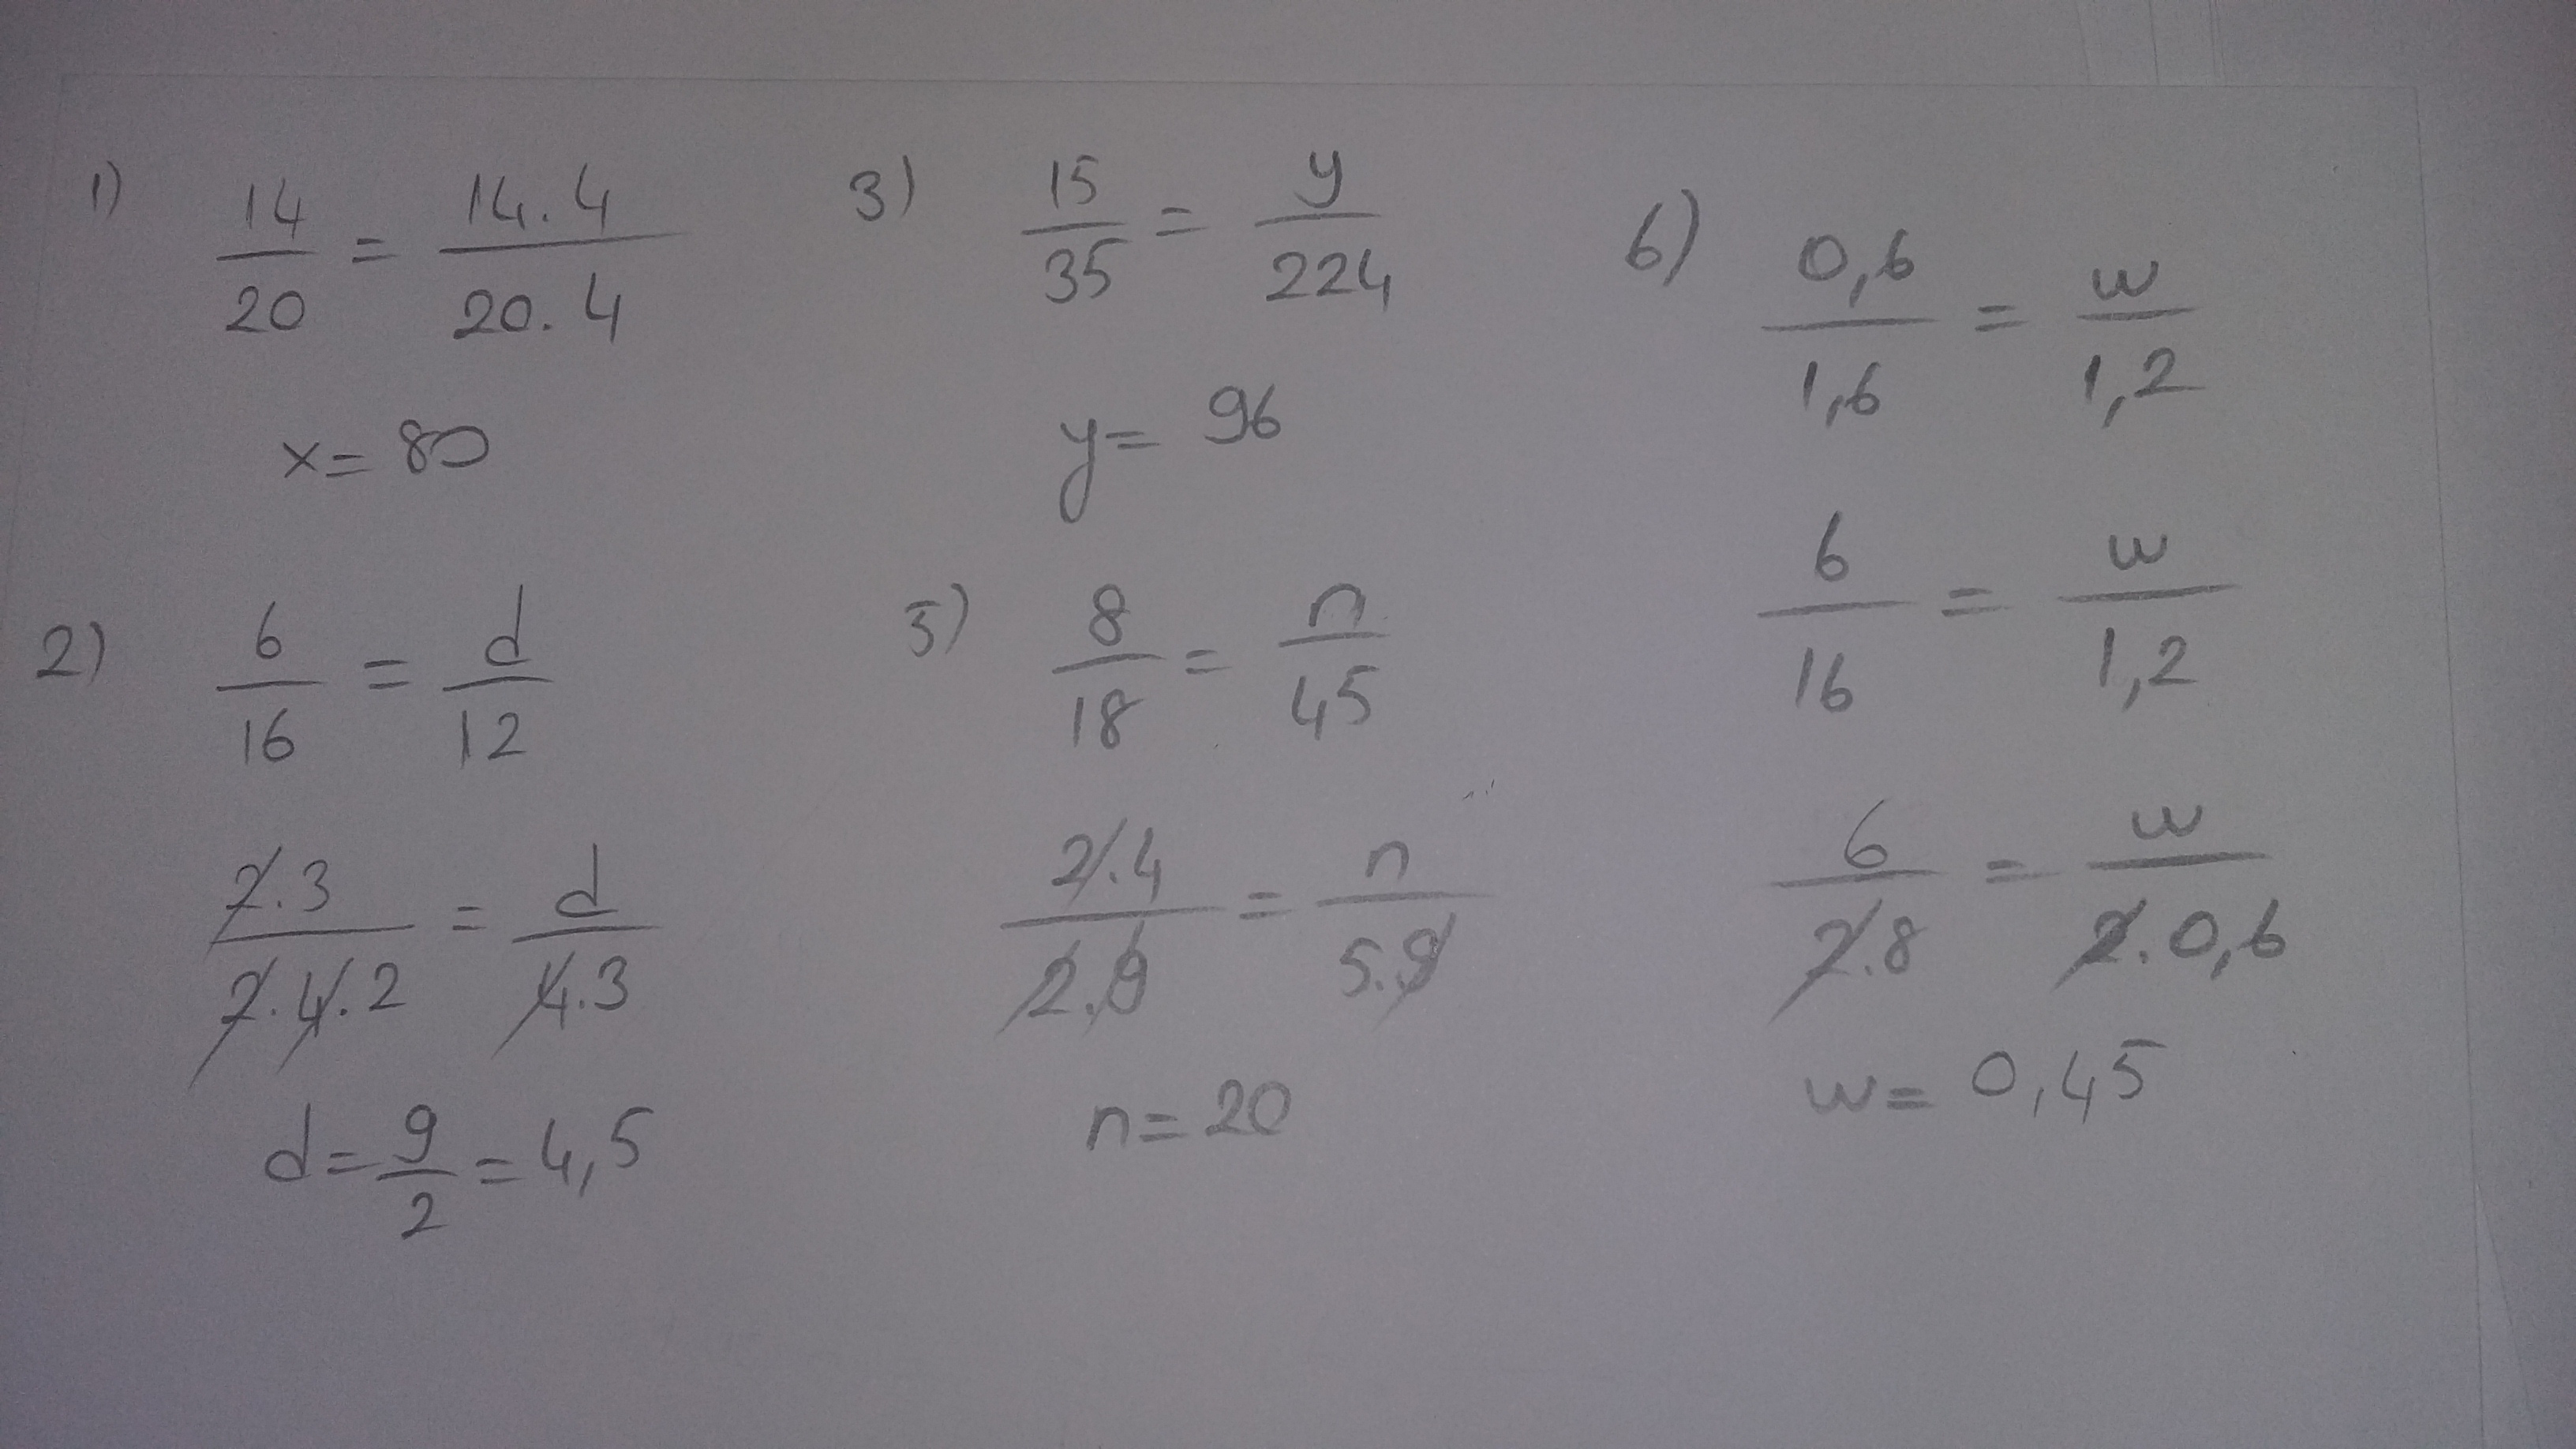 1) 14/20 = 14.4/20.4
x= 80
2) 6/16 = d/12
2.3/2.4.2 = d/4.3
d= 9/2 = 4,5
3) 15/35 = y/224
y= 96
5) 8/18 = n/45
2.4/2.9 = n/5.9
n= 20
6) 0,6/1,6 = w/1,2
6/16 = w/1,2
6/2.8 = w/2.0,6
w= 0,45